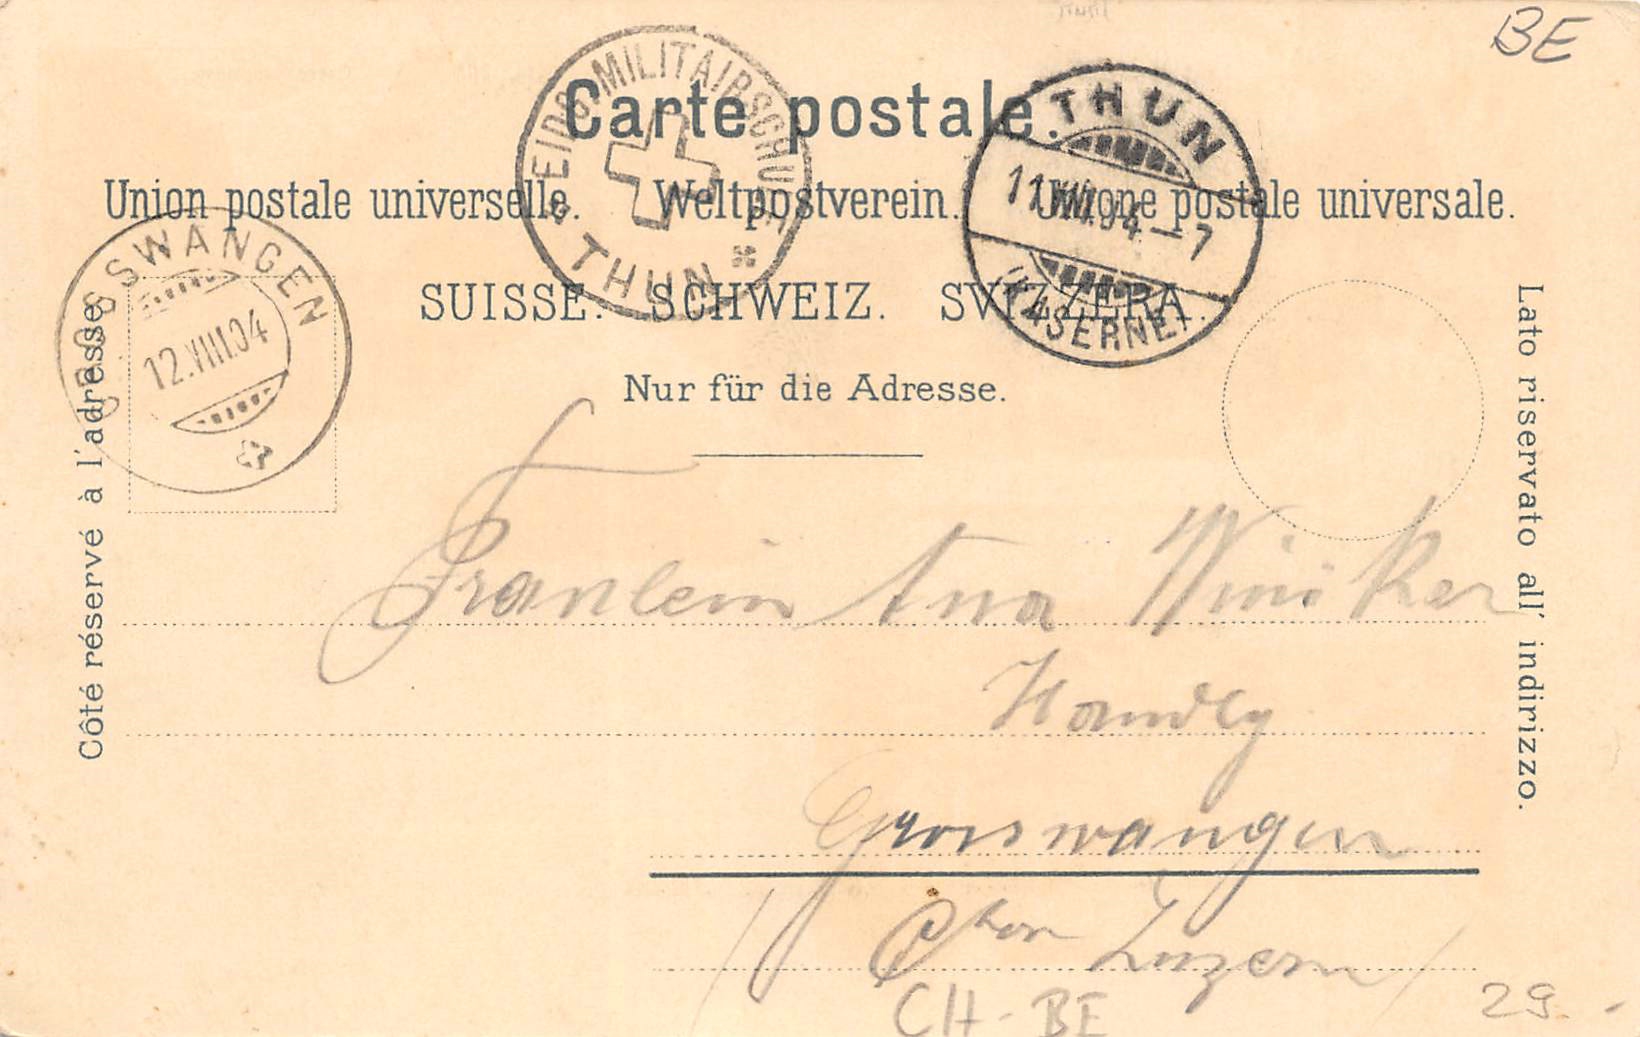 BE
Carte postale.
Union postale universelle. Weltpostverein. Unione postale universale.
SUISSE. SCHWEIZ. SVIZZERA.
Nur für die Adresse.
EIDG. MILITAIRSCHULE
THUN
THUN
11.VIII.04.—7
(KASERNE)
GROSSWANGEN
12.VIII.04
Côté réservé à l'adresse.
Lato riservato all' indirizzo.
Fraulein Anna Winiker
Grosswangen
Cton Luzern
CH-BE
29.-